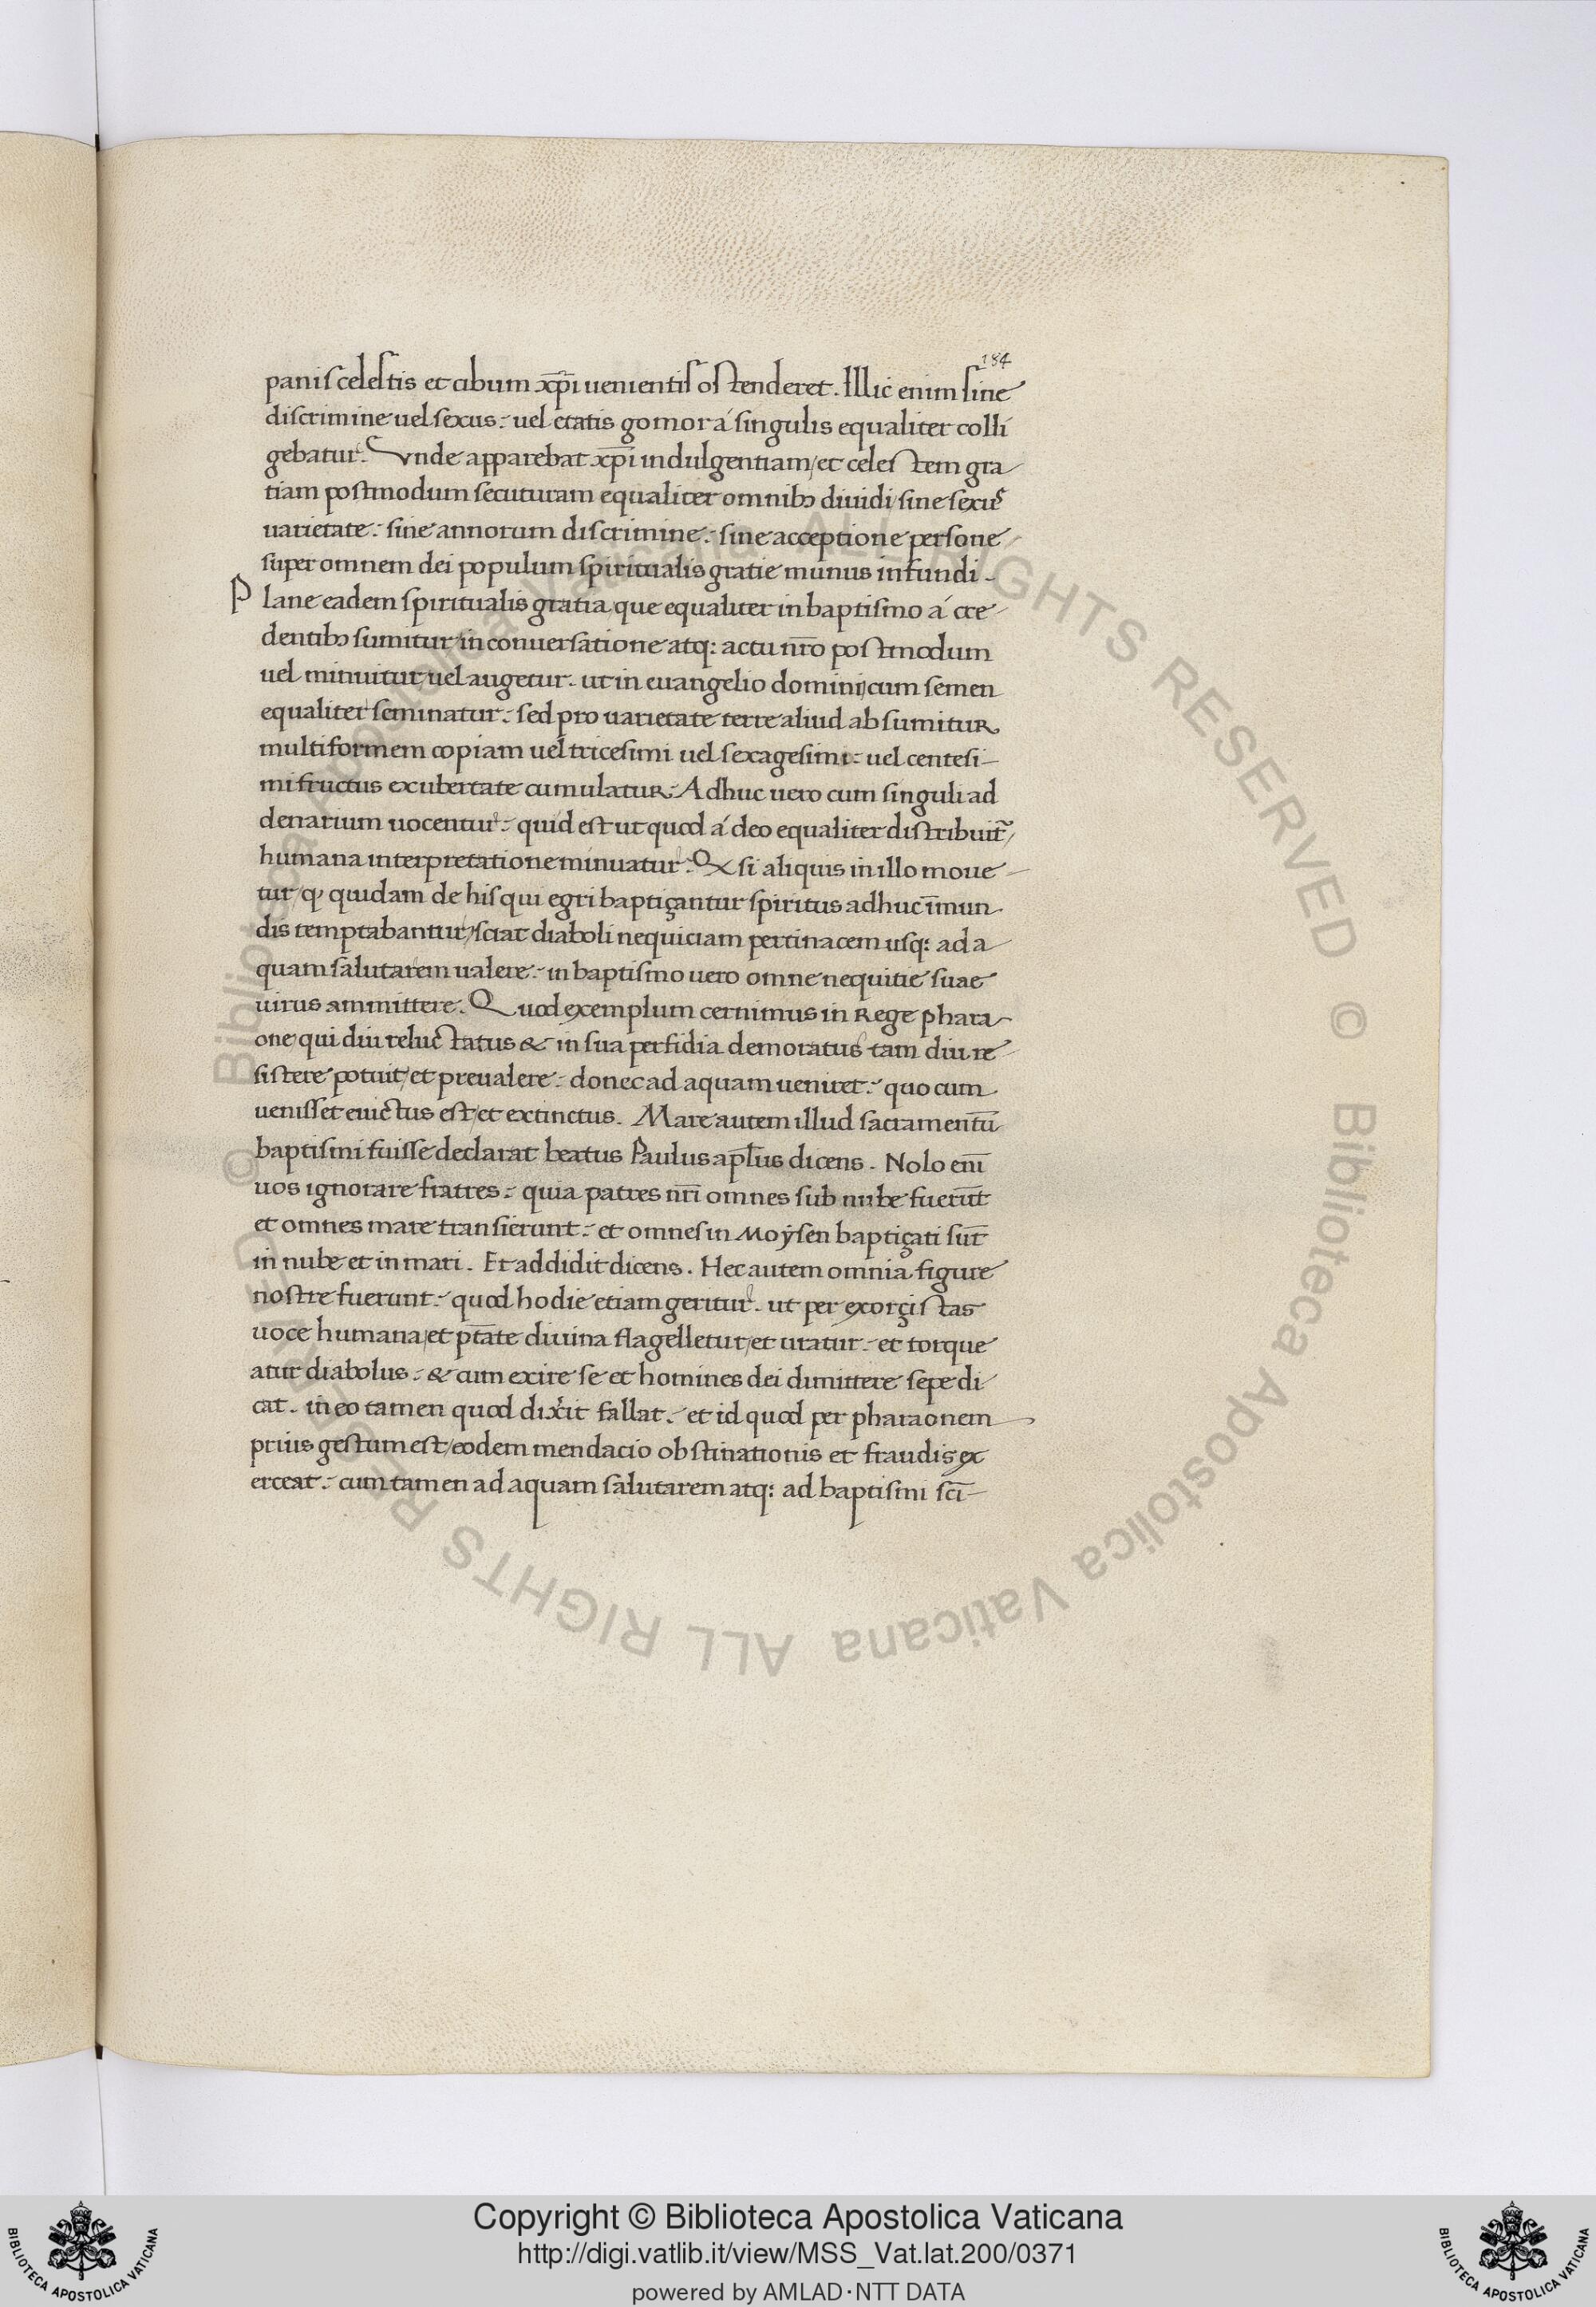 184
panis celestis et cibum xp̄i uenientis ostenderet. Illic enim sine
discrimine uel sexus: uel etatis gomor á singulis equaliter colli
gebatur. Vnde apparebat xp̄i indulgentiam/et celestem gra
tiam postmodum secuturam equaliter omnibꝫ diuidi/sine sexus
uarietate: sine annorum discrimine: sine acceptione persone
super omnem dei populum spiritualis gratie munus infundi.
Plane eadem spiritualis gratia/que equaliter in baptismo á cre
dentibꝫ sumitur/in conuersatione atq: actu nr̄o postmodum
uel minuitur/uel augetur. ut in euangelio domini/cum semen
equaliter seminatur: sed pro uarietate terre aliud absumitur
multiformem copiam uel tricesimi uel sexagesimi: uel centesi
mi fructus exubertate cumulatur. Adhuc uero cum singuli ad
denarium uocentur: quid est ut quod á deo equaliter distribuit̄/
humana interpretatione minuatur. Q si aliquis in illo moue
tur/ꝙ quidam de his qui egri baptiçantur spiritus adhuc īmun
dis temptabantur/sciat diaboli nequiciam pertinacem usq: ad a
quam salutarem ualere: in baptismo uero omne nequitie suae
uirus ammittere. Quod exemplum cernimus in Rege phara
one/qui diu reluctatus & in sua perfidia demoratus tam diu re
sistere potuit/et preualere: donec ad aquam ueniret: quo cum
uenisset euictus est/et extinctus. Mare autem illud sacramentū
baptismi fuisse declarat beatus Paulus apl̄us dicens. Nolo eni̅
uos ignorare fratres: quia patres nr̄i omnes sub nube fuerūt
et omnes mare transierunt: et omnes in Moẏsen baptiçati sūt
in nube et in mari. Et addidit dicens. Hec autem omnia figure
nostre fuerunt: quod hodie etiam geritur. ut per exorçistas
uoce humana/et pt̄ate diuina flagelletur/et uratur: et torque
atur diabolus: & cum exire se et homines dei dimittere sepe di
cat. in eo tamen quod dixerit fallat: et id quod per pharaonem
prius gestum est/eodem mendacio obstinationis et fraudis ex
erceat: cum tamen ad aquam salutarem atq: ad baptismi sc̄i
© Biblioteca Apostolica Vaticana ALL RIGHTS RESERVED © Biblioteca Apostolica Vaticana ALL RIGHTS RESERVED
Copyright © Biblioteca Apostolica Vaticana
http://digi.vatlib.it/view/MSS_Vat.lat.200/0371
powered by AMLAD·NTT DATA
BIBLIOTECA APOSTOLICA VATICANA
BIBLIOTECA APOSTOLICA VATICANA